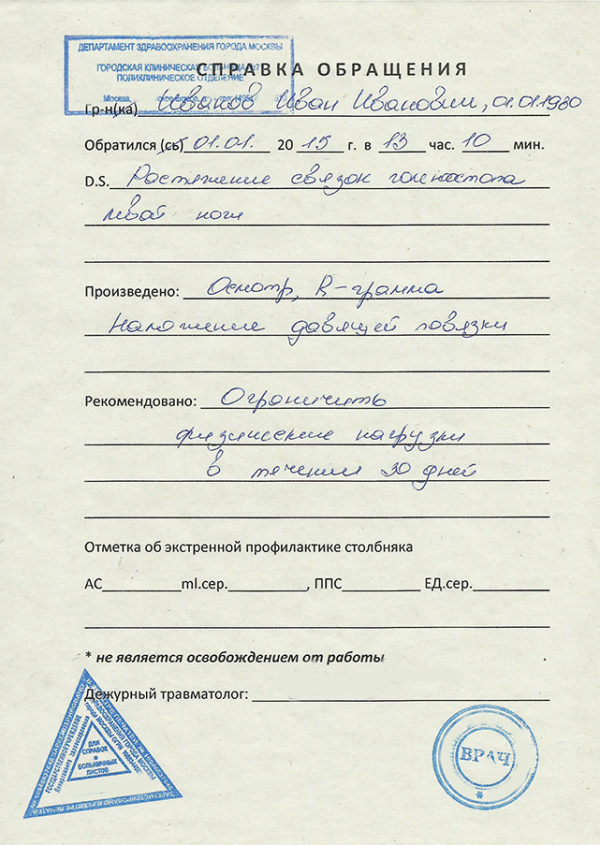 ДЕПАРТАМЕНТ ЗДРАВООХРАНЕНИЯ ГОРОДА МОСКВЫ
ГОРОДСКАЯ КЛИНИЧЕСКАЯ БОЛЬНИЦА
ПОЛИКЛИНИЧЕСКОЕ ОТДЕЛЕНИЕ
Москва,
СПРАВКА ОБРАЩЕНИЯ
Гр-н(ка) Иванов Иван Иванович, 01.01.1980
Обратился (сь) 01.01. 2015 г. в 13 час. 10 мин.
D.S. Растяжение связок голеностопа
левой ноги
Произведено: Осмотр, R-грамма
Наложение давящей повязки
Рекомендовано: Ограничить
физические нагрузки
в течении 30 дней
Отметка об экстренной профилактике столбняка
АС ml.сер. , ППС ЕД.сер.
* не является освобождением от работы
Дежурный травматолог:
ДЛЯ
СПРАВОК
И
БОЛЬНИЧНЫХ
ЛИСТОВ
ВРАЧ
*